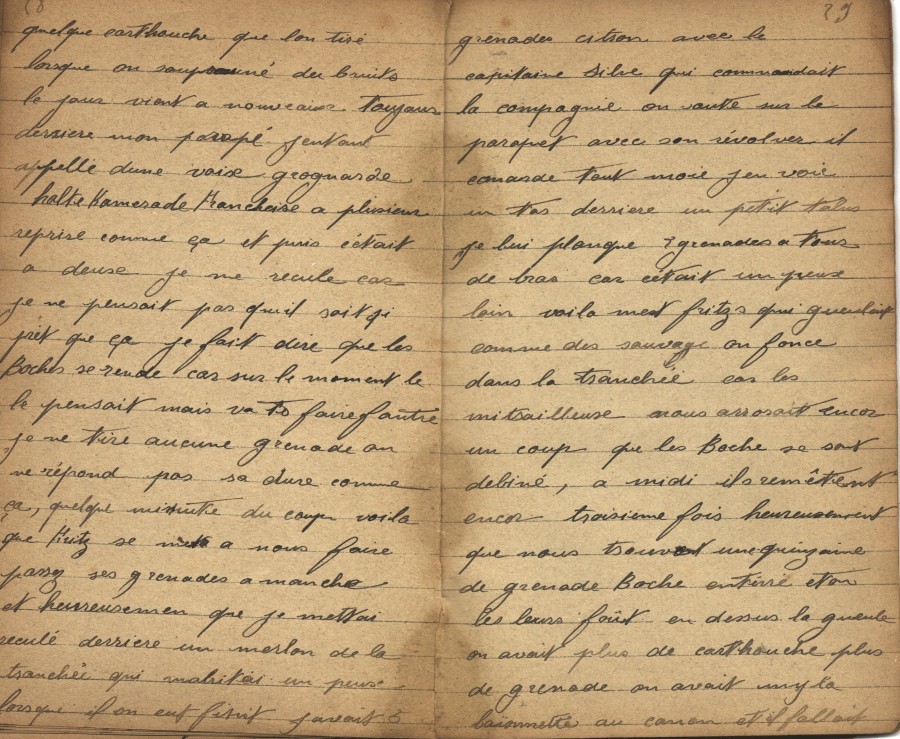 28
quelque carthouche que lon tiré
lorsque on soupsouné des bruits
le jour vient a nouveaux toujours
derriere mon parapé jentant
appellé dune voix grognarde
halte Kamerade Francheise a plusieur
reprise comme ça et puis c'était
a deuse je me recule car
je ne pensait pas quil soit si
prêt que ça je fait dire que les
Boches se rende car sur le moment le
le pensait mais va ts faire fautré
je ne tire aucune grenade on
ne répond pas sa dure comme
ça, quelque minute du coup voila
que Fritz se met a nous faire
passez ses grenades a manche
et heureusemen que je mettai
reculé derriere un merlon de la
tranchée qui mabritai un peux
lorsque il on eut finit javait 5
29
grenades citron avec le
capitaine Silve qui commandait
la compagnie on saute sur le
parapet avec son révolver il
canarde tout moie jen voie
un tas derriere un petit talus
je lui planque 2 grenades a tour
de bras car cétait un peux
loin voila met fritzs qui gueulait
comme des sauvage on fonce
dans la tranchée car les
mitrailleuse nous arrosait encor
un coup que les Boche se sont
debiné, a midi ils remêttent
encor troisieme fois heureusement
que nous trouvont une quinzaine
de grenade Boche entérré et on
les leurs fout en dessus la gueule
on avait plus de carthouche plus
de grenade on avait my la
baionnette au canon et il fallait